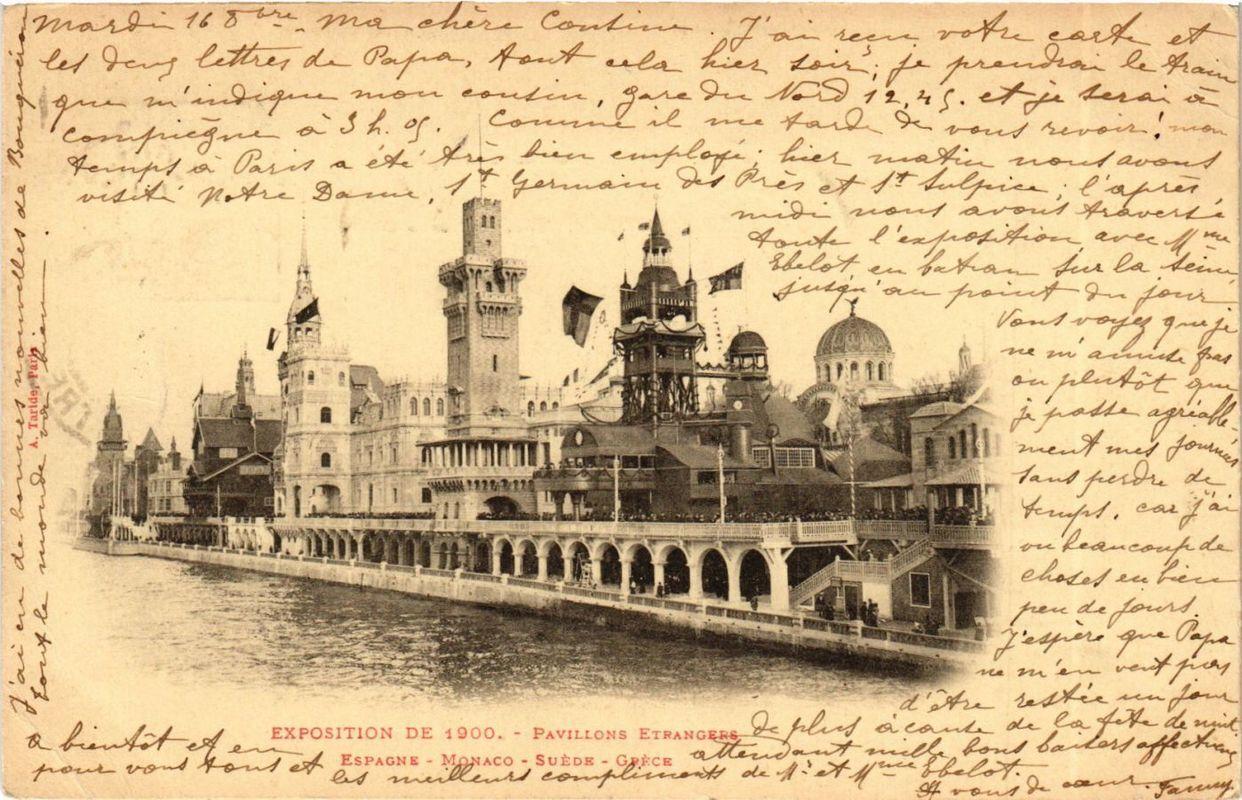 Mardi 16 8bre. Ma chère Cousine. J'ai reçu votre carte et
les deux lettres de Papa, tout cela hier soir; je prendrai le train
que m'indique mon cousin, gare du Nord 12,45. et je serai à
Compiègne à 3 h. 05. Comme il me tarde de vous revoir! mon
temps à Paris a été très bien employé; hier matin nous avons
visité Notre Dame, St Germain des Près et St Sulpice; l'après
midi nous avons traversé
toute l'exposition avec Mme
Ebelot, en bateau sur la Seine
jusqu'au point du jour
Vous voyez que je
ne m'amuse pas
ou plutôt que
je passe agréable-
ment mes journées
sans perdre de
temps, car j'ai
vu beaucoup de
choses en bien
peu de jours.
J'espère que Papa
ne m'en veut pas
d'être restée un jour
de plus à cause de la fête de nuit.
attendant mille bons baisers affectueux
à bientôt et en
pour vous tous et les meilleurs compliments de Mr et Mme Ebelot.
A vous de cœur. Fanny.
J'ai eu de bonnes nouvelles de
tout le monde va bien.
A. Taride, Paris
EXPOSITION DE 1900. - PAVILLONS ETRANGERS
ESPAGNE - MONACO - SUÈDE - GRÈCE